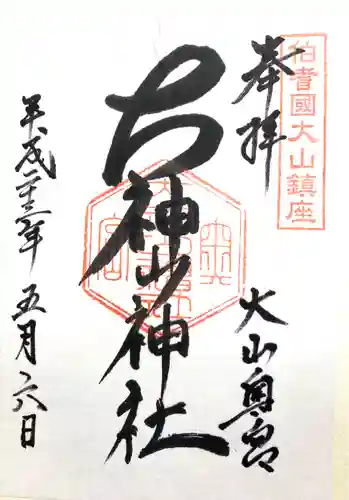 伯耆國大山鎮座
奉拝
大山奥宮
大神山神社
平成二十三年 五月六日